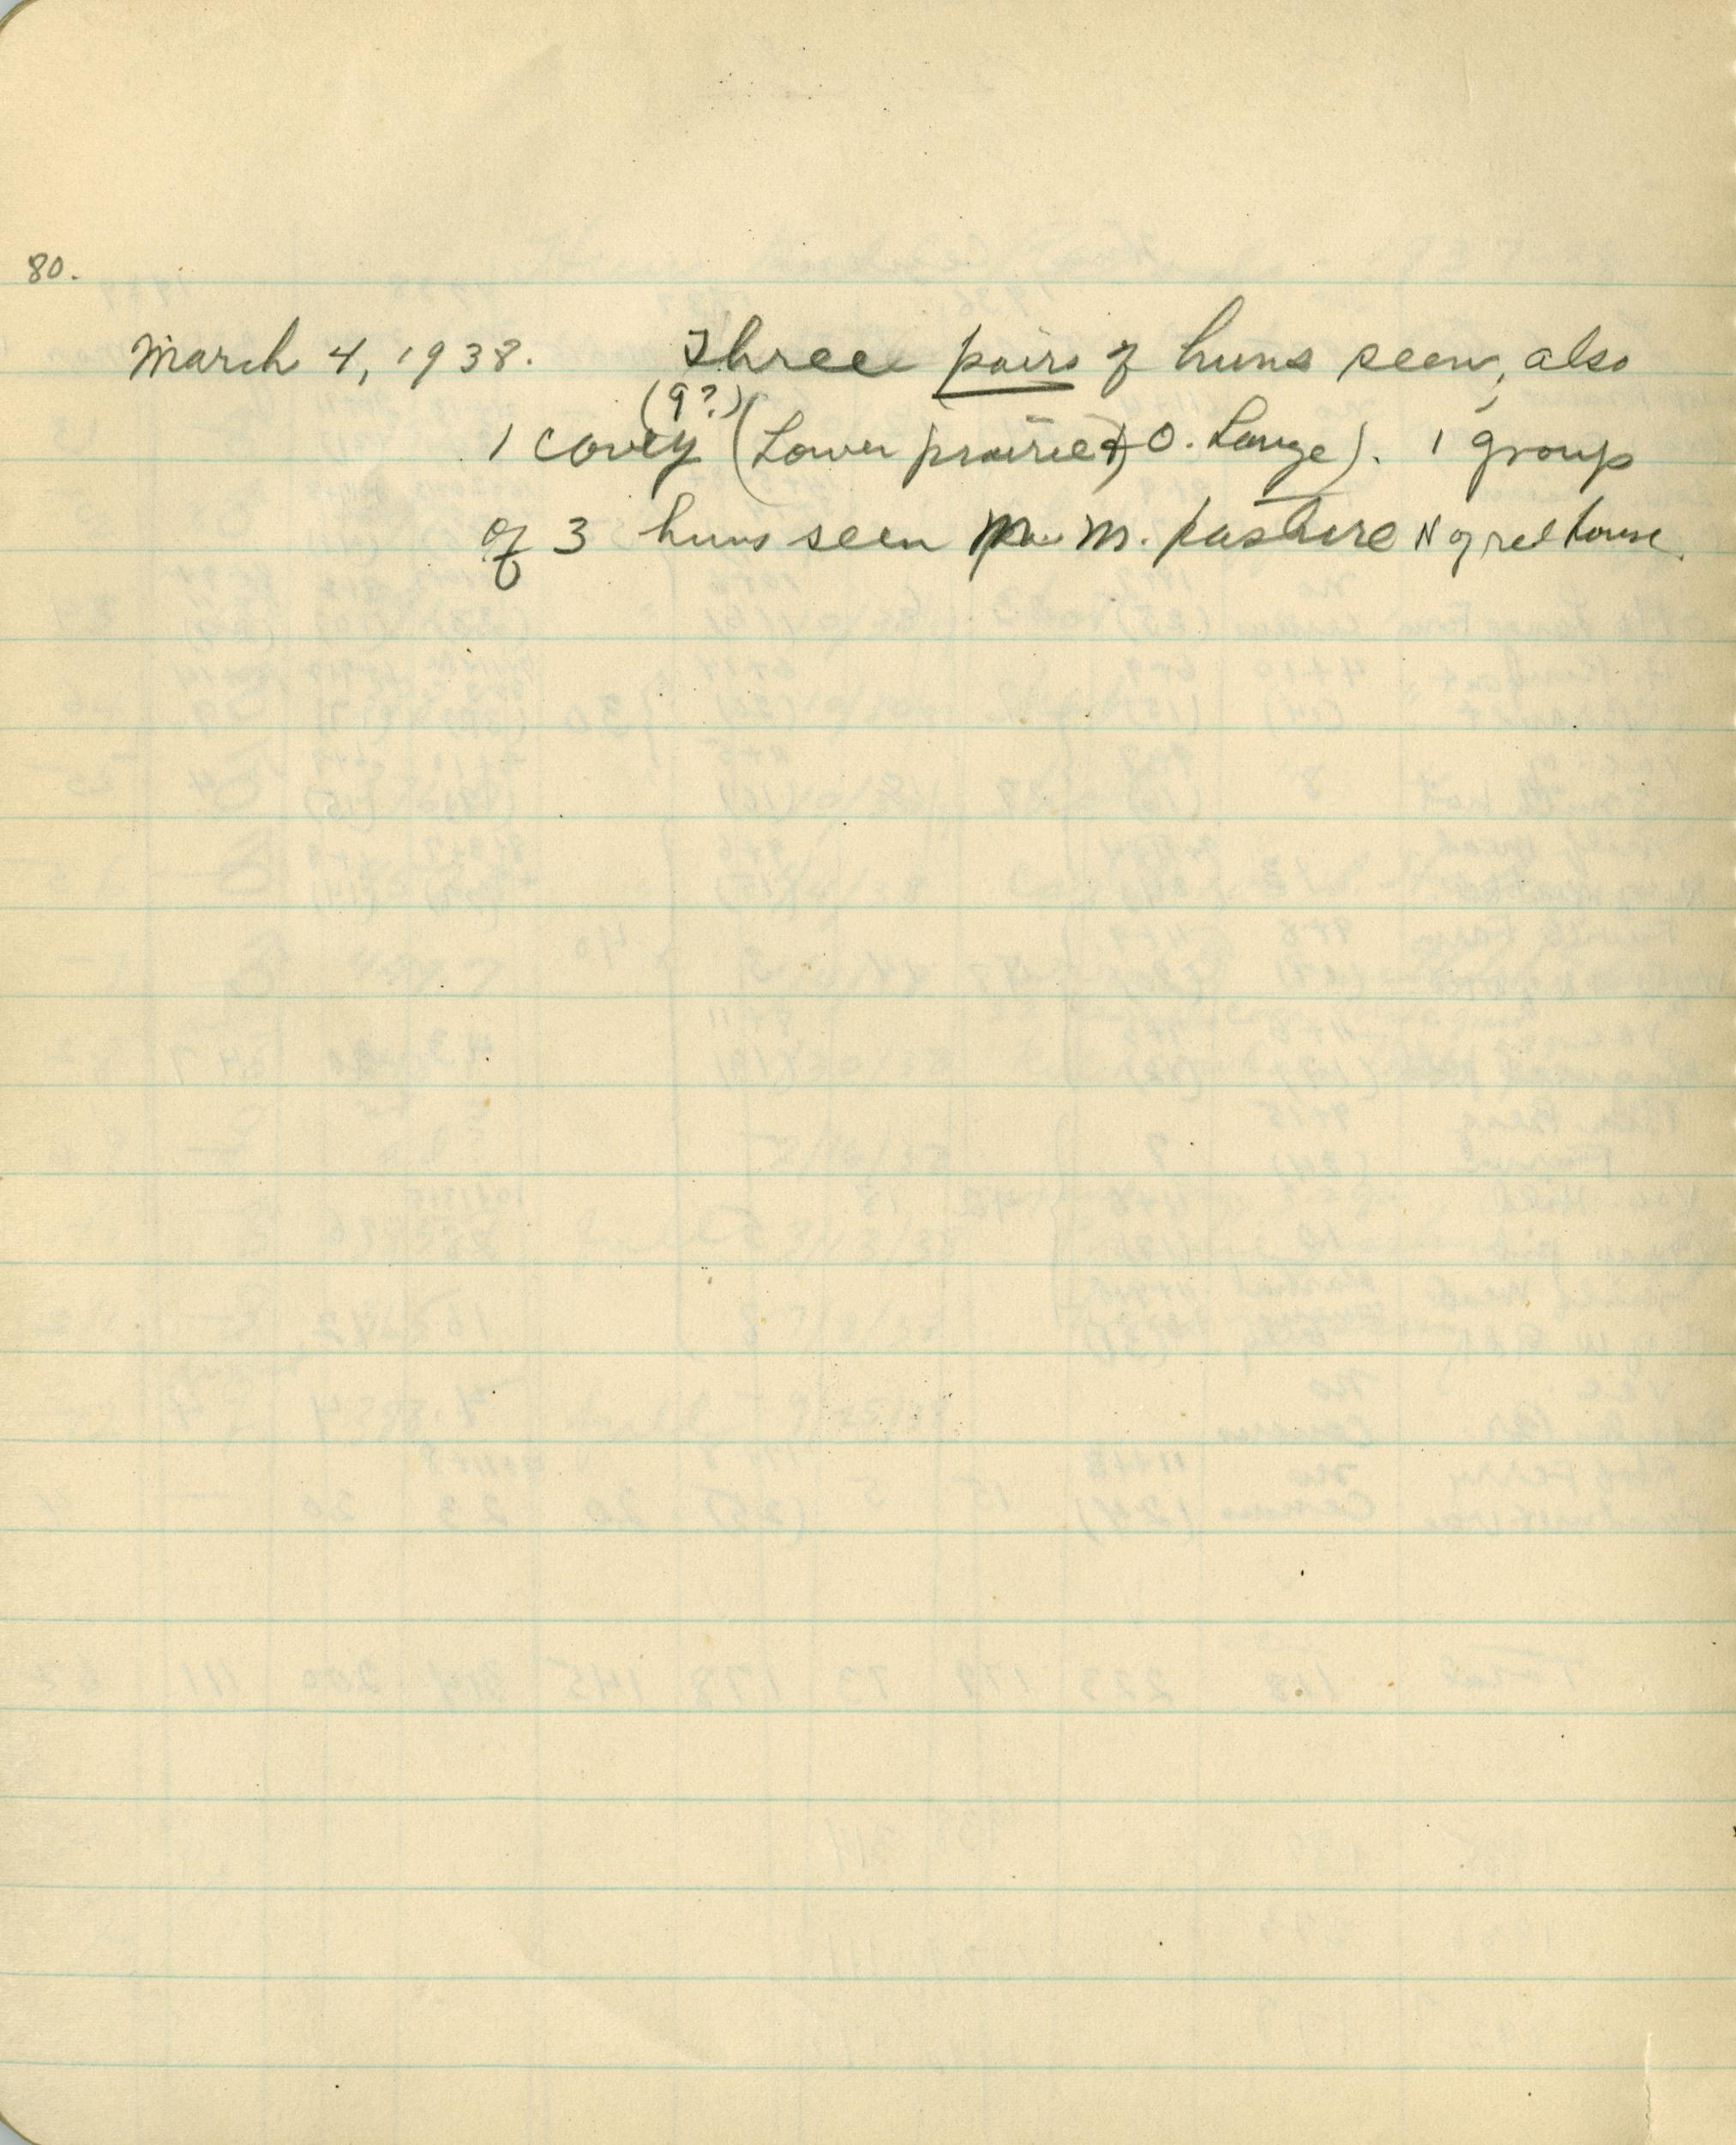 80.
March 4, 1938. Three pairs of huns seen, also
(9?)
1 covey (Lower prairie & O. Lange). 1 group
of 3 huns seen M. pasture N of red house.